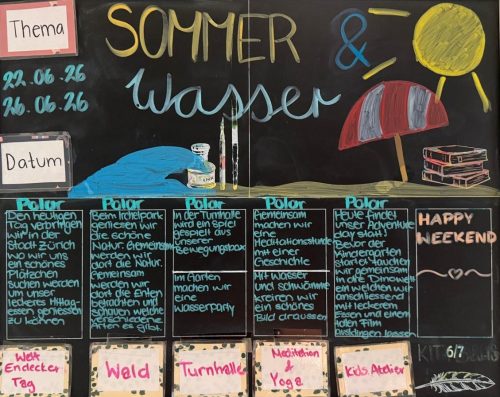 Thema
SOMMER &
Wasser
22.06.26
26.06.26
Datum
Polar
Den heutigen
Tag verbringen
wir in der
Stadt Zürich
wo wir uns
ein schönes
Plätzchen
suchen werden
um unser
leckeres Mittag-
essen geniessen
zu können
Polar
Beim Irchelpark
geniessen wir
die schöne
Natur. Gemeinsam
werden wir
dort die Natur.
Gemeinsam
werden wir
dort die Enten
betrachten und
schauen welche
verschiedene
Arten es gibt.
Polar
In der Turnhalle
wird ein Spiel
gespielt aus
unserer
Bewegungsbox
Im Garten
machen wir
eine
Wasserparty
Polar
Gemeinsam
machen wir
eine
Meditationsstunde
mit eine
Geschichte
Mit Wasser
und Schwämme
kreiren wir
ein schönes
Bild draussen
Polar
Heute findet
unser Adventure
Day statt!
Bevor der
Kindergarten
startet tauchen
wir gemeinsam
in die Dinowelt
ein welchen wir
anschliessend
mit leckerem
Essen und einem
tollen Film
ausklingen lassen
HAPPY
WEEKEND
Welt
Entdecker
Tag
Wald
Turnhalle
Meditation
&
Yoga
Kids Atelier
KITA 6/7